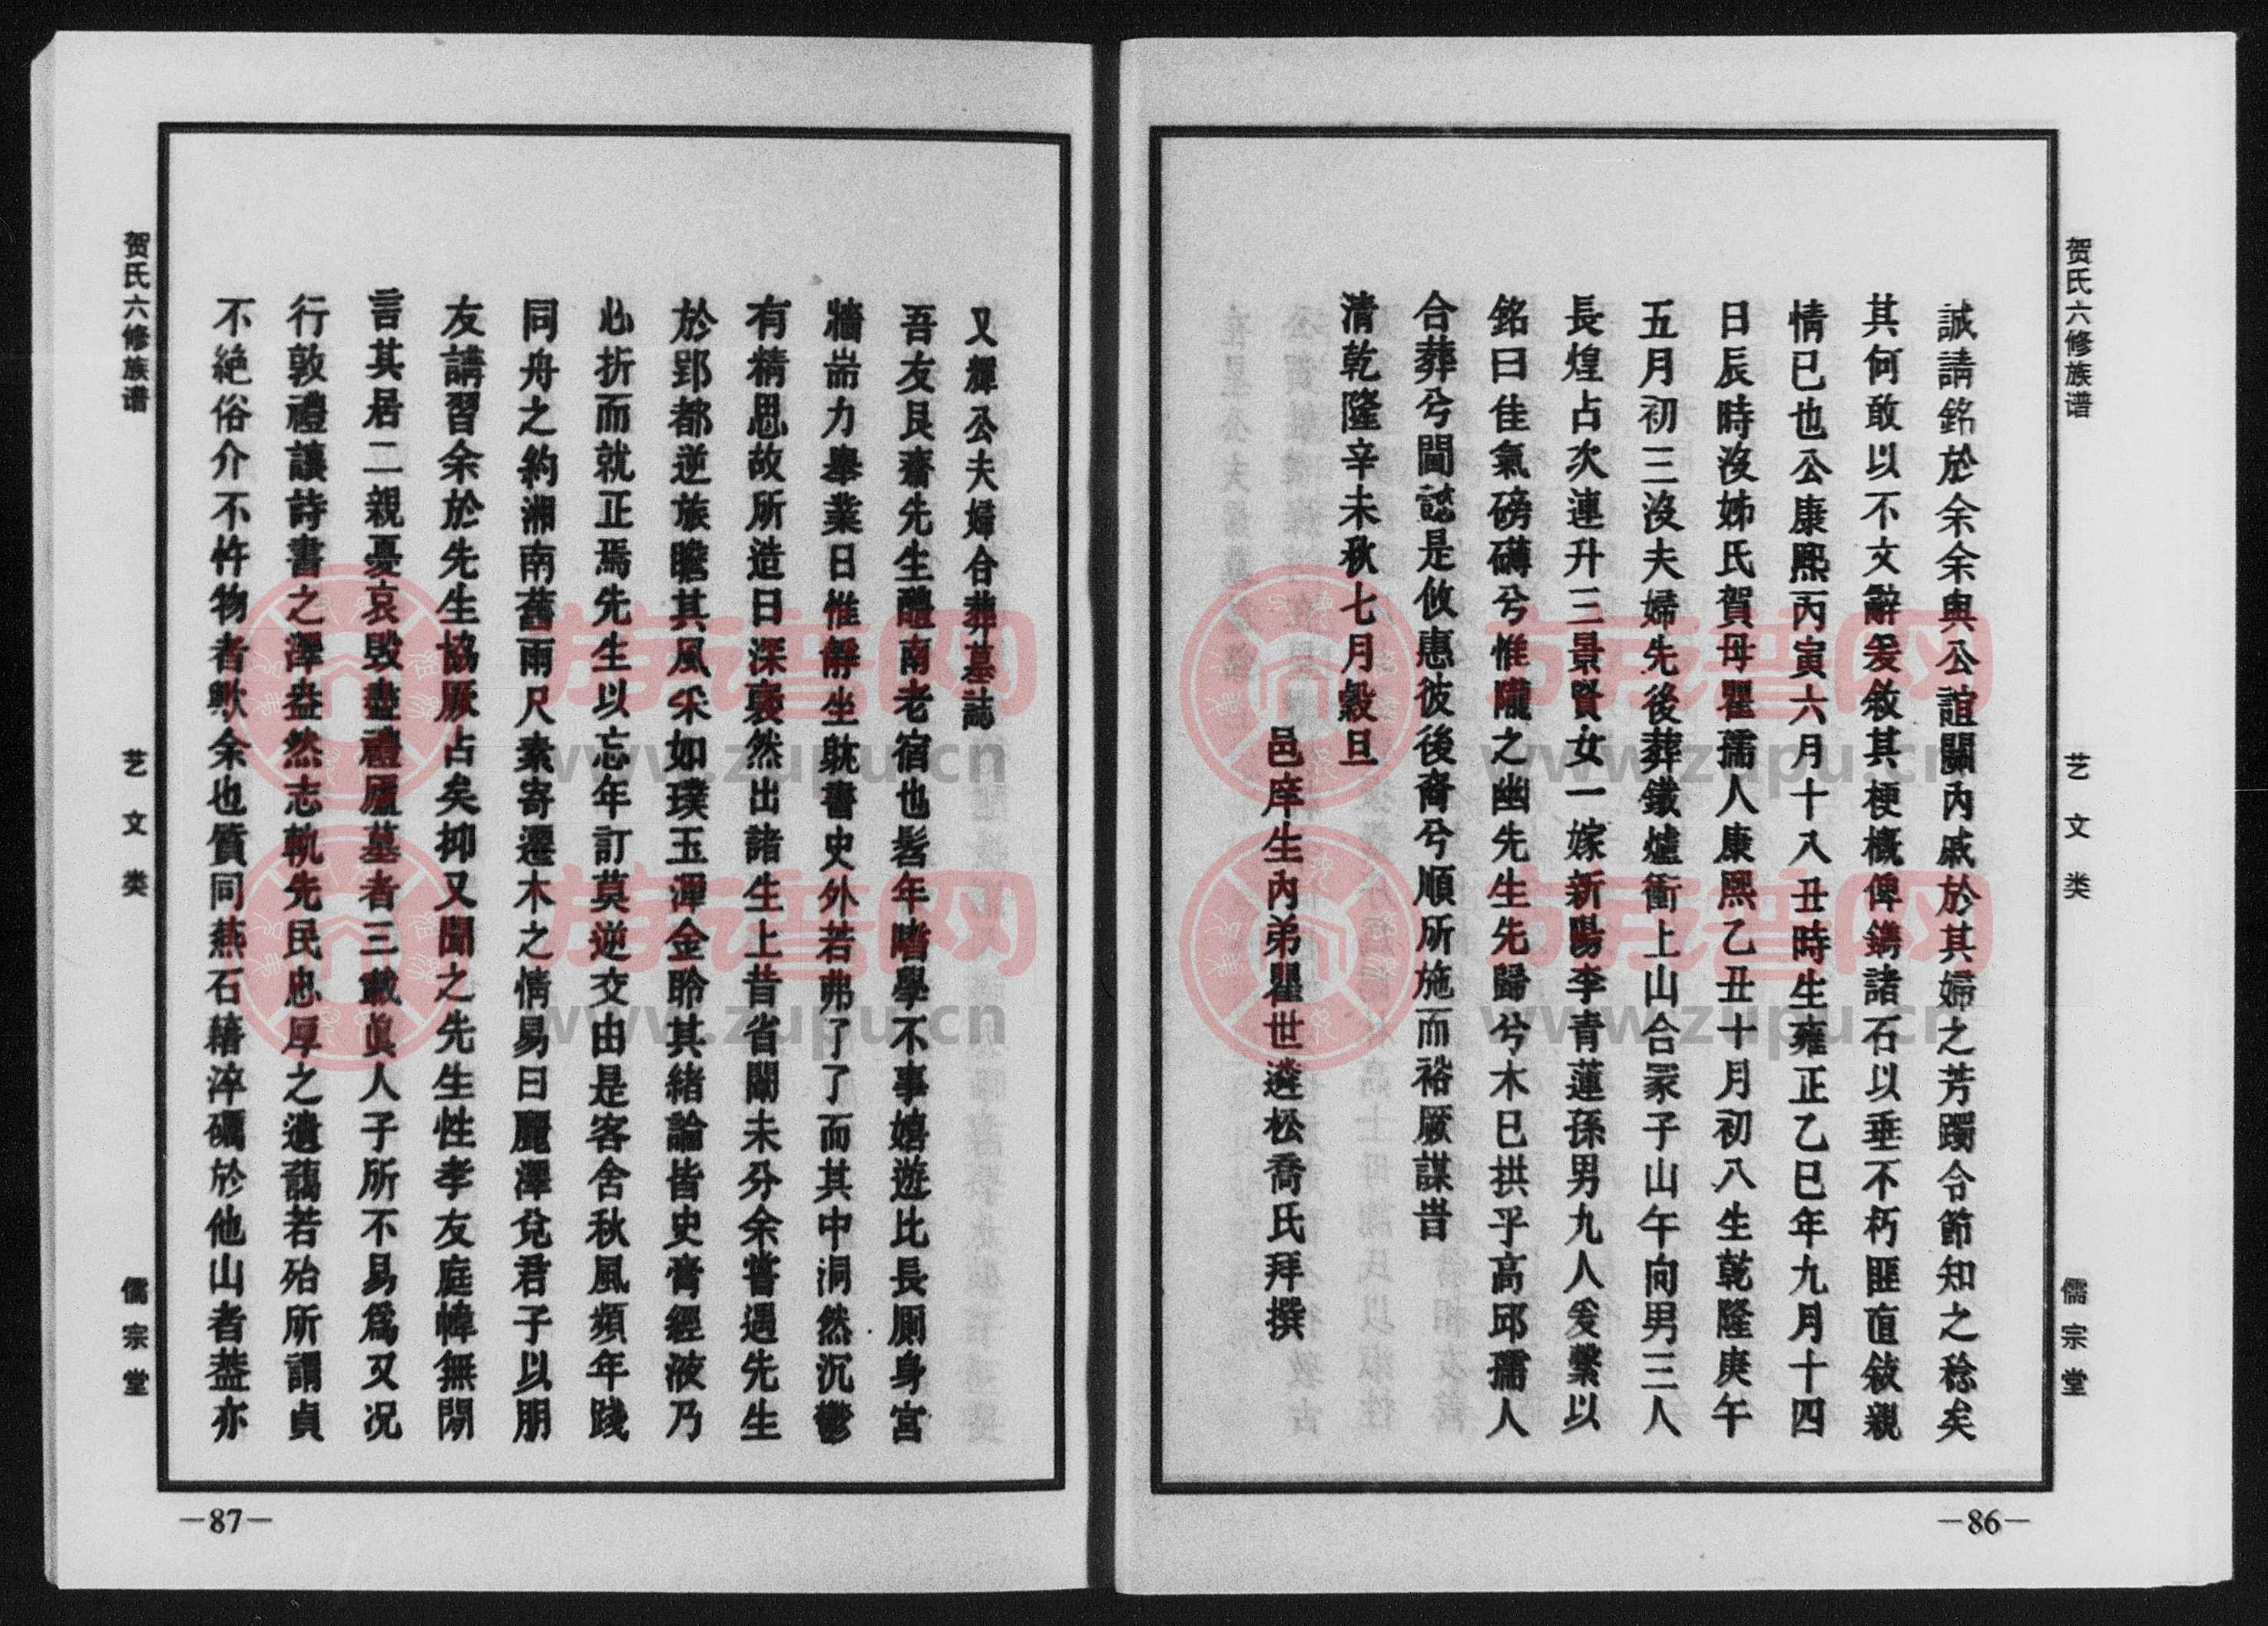 贺氏六修族谱
艺文类
儒宗堂
誠請銘於余余與公誼關內戚於其婦之芳躅令節知之稔矣
其何敢以不文辭爰敘其梗概俾鐫諸石以垂不朽匪直敍親
情已也公康熙丙寅六月十八丑時生雍正乙巳年九月十四
日辰時沒姊氏賀母瞿孺人康熙乙丑十月初八生乾隆庚午
五月初三沒夫婦先後葬鐵爐衝上山合冢子山午向男三人
長煌占次連升三景賢女一嫁新陽李青蓮孫男九人爰繫以
銘曰佳氣磅礡兮惟隴之幽先生先歸兮木巳拱乎高邱孺人
合葬兮閫諡是攸惠彼後裔兮順所施而裕厥謀旹
清乾隆辛未秋七月穀旦
邑庠生內弟瞿世遴松喬氏拜撰
—86—
又輝公夫婦合葬墓誌
吾友艮齋先生醴南老宿也髫年嗜學不事嬉遊比長廁身宮
牆耑力舉業日惟靜坐躭書史外若弗了了而其中洞然沉鬱
有精思故所造日深裒然出諸生上昔省闈未分余嘗遇先生
於郢都逆旅瞻其風采如璞玉渾金聆其緒論皆史膏經液乃
心折而就正焉先生以忘年訂莫逆交由是客舍秋風頻年踐
同舟之約湘南舊雨尺素寄遷木之情易曰麗澤兌君子以朋
友講習余於先生協厥占矣抑又聞之先生性孝友庭幃無閒
言其居二親憂哀毀盡禮廬墓者三載眞人子所不易爲又况
行敦禮讓詩書之澤盎然志軌先民忠厚之遺藹若殆所謂貞
不絶俗介不忤物者歟余也質同燕石藉淬礪於他山者葢亦
贺氏六修族谱
艺文类
儒宗堂
—87—
族谱网
www.zupu.cn
族谱网
www.zupu.cn
族谱网
www.zupu.cn
族谱网
www.zupu.cn